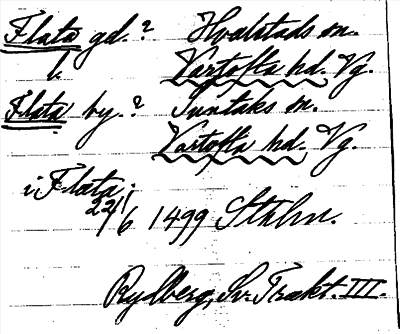 Flata gd. ? Hvalstads sn.
l. Vartofta hd. Vg.
Flata by. ? Suntaks sn.
Vartofta hd. Vg.
i Flata;
22/6 1499 Sthlm.
Rydberg, Sv. Trakt. III.